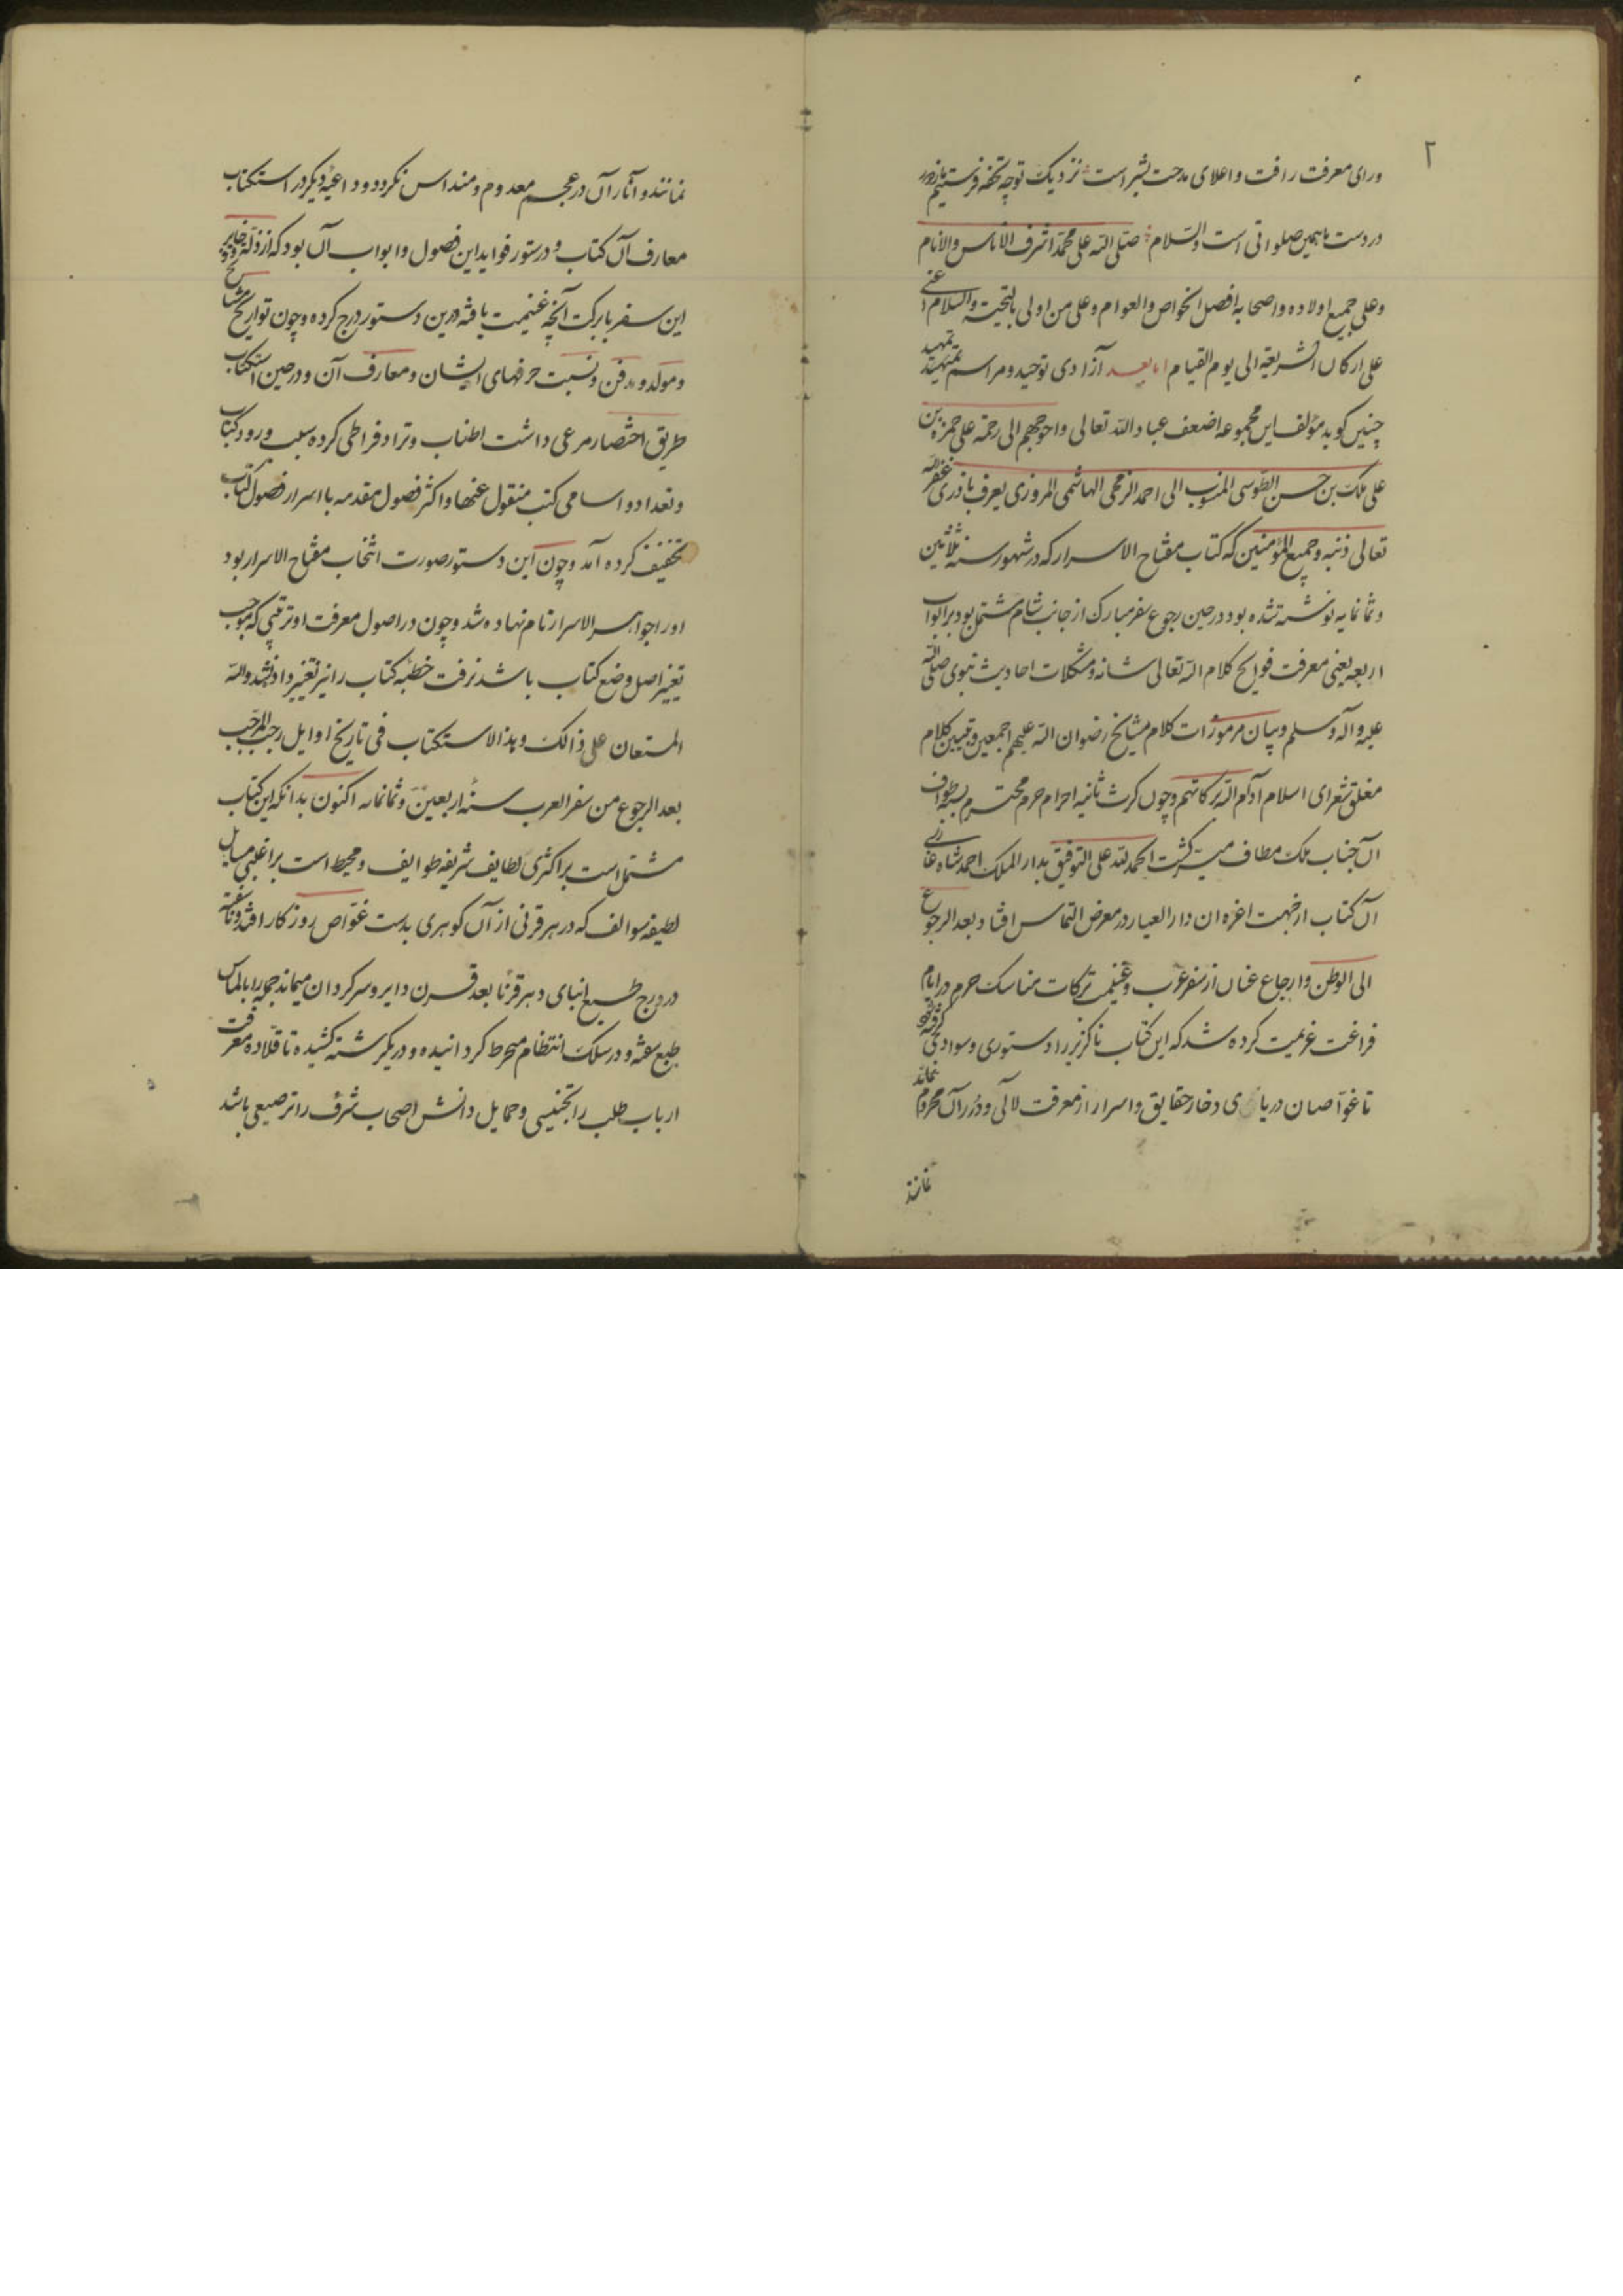 ۲
ورای معرفت رافت و اعلای مدحت بشر است نزدیک توجه تحفه فرستیم
در دست ما همین صلواتی است والسلام صلی الله علی محمد اشرف الاناس والانام
وعلی جمیع اولاده واصحابه افضل الخواص والعوام وعلی من اولی بالتحیت والسلام
علی ارکان الشریعة الی یوم القیام اما بعد آزادی توحید و مراسم تمهید
چنین کوید مؤلف این مجموعه اضعف عباد الله تعالی واحوجهم الی رحمة علی حمزه بن
علی ملک بن حسن الطوسی المنسوب الی احمد الزمجی الهاشمی المروزی یعرف باذری غفر الله
تعالی ذنبه وجمیع المؤمنین که کتاب مفتاح الاسرار که در شهور سنه ثلاثین
وثمانمایه نوشته شده بود در حین رجوع سفر مبارک از جانب شام مشتمل بود بر ابواب
اربعه یعنی معرفت فواتح کلام الله تعالی شانه و مشکلات احادیث نبوی صلی الله
علیه واله وسلم و بیان مرموزات کلام مشایخ رضوان الله علیهم اجمعین و تبیین کلام
مغلق شعرای اسلام ادام الله برکاتهم و چون کرت ثانیه احرام حرم محترم بطواف
آن جناب ملک مطاف میسر کشت الحمد لله علی التوفیق بدار الملک احمد شاه غازی
آن کتاب از جهت اعزه ان دار العیار در معرض التماس افتاد و بعد الرجوع
الی الوطن و ارجاع عنان از سفر عرب و غنیمت ترکات مناسک حرم در ایام
فراغت عزیمت کرده شد که این کتاب ناکزیر را دستوری و سوادی کرفته شود
تا غواصان دریای ذخار حقایق و اسرار از معرفت لالی و درر آن محروم نماند
نمانند
نمانند و آثار آن در عجم معدوم و منداس نکردد و داعیه دیکر در استکتاب
معارف آن کتاب و دستور فواید این فصول و ابواب آن بود که از
این سفر بابرکت آنچه غنیمت یافته درین دستور درج کرده و چون تواریخ مشایخ
و مولد و مدفن و نسبت حرفهای ایشان و معارف آن و در حین استکتاب
طریق اختصار مرعی داشت اطناب و ترادفراطی کرده سبب ورود کتاب
و تعداد و اسامی کتب منقول عنها و اکثر فصول مقدمه با اسرار فصول کتاب
تخفیف کرده آمد و چون این دستور صورت انتخاب مفتاح الاسرار بود
اورا جواهر الاسرار نام نهاده شد و چون در اصول معرفت او ترتیبی که موجب
تغییر اصل وضع کتاب باشد نرفت خطبه کتاب را نیز تغییر داده نشد والله
المستعان علی ذالک و هذا الاستکتاب فی تاریخ اوایل رجب المرجب
بعد الرجوع من سفر العرب سنه اربعین و ثمانمائه اکنون بدانکه این کتاب
مشتمل است بر اکثری لطایف شریفه طوایف و محیط است بر اغلبی مسایل
لطیفه سوالف که در هر قرنی از آن کوهری بدست غواص روزکار افتد و ناسفته
در درج طبع انبای دهر قرنا بعد قرن دایر و سرکردان میماند جمله را بالماس
طبع سفته و در سلک انتظام منخرط کردانیده و در یک رشته کشیده تا قلاده معرفت
ارباب طلب را تجنیسی و حمایل دانش اصحاب شرف را ترصیعی باشد